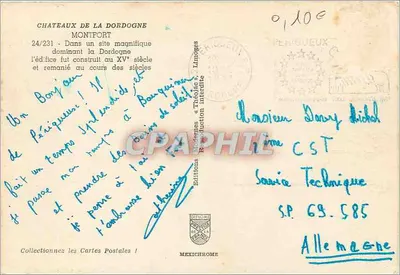 0,10€
CHATEAUX DE LA DORDOGNE
MONTFORT
24/231 - Dans un site magnifique
dominant la Dordogne
l'édifice fut construit au XVe siècle
et remanié au cours des siècles
Un Bonjour
de Périgueux! Il
fait un temps splendide et
je passe mon temps à
et prendre des bains de soleil.
je pense à toi
t'embrasse bien
Catherine
Editions Modernes « Théojac », Limoges
Reproduction interdite
PERIGUEUX
CPARAMA
Monsieur Michel
CST
Service Technique
S.P. 69.585
Allemagne
Collectionnez les Cartes Postales !
MEXICHROME